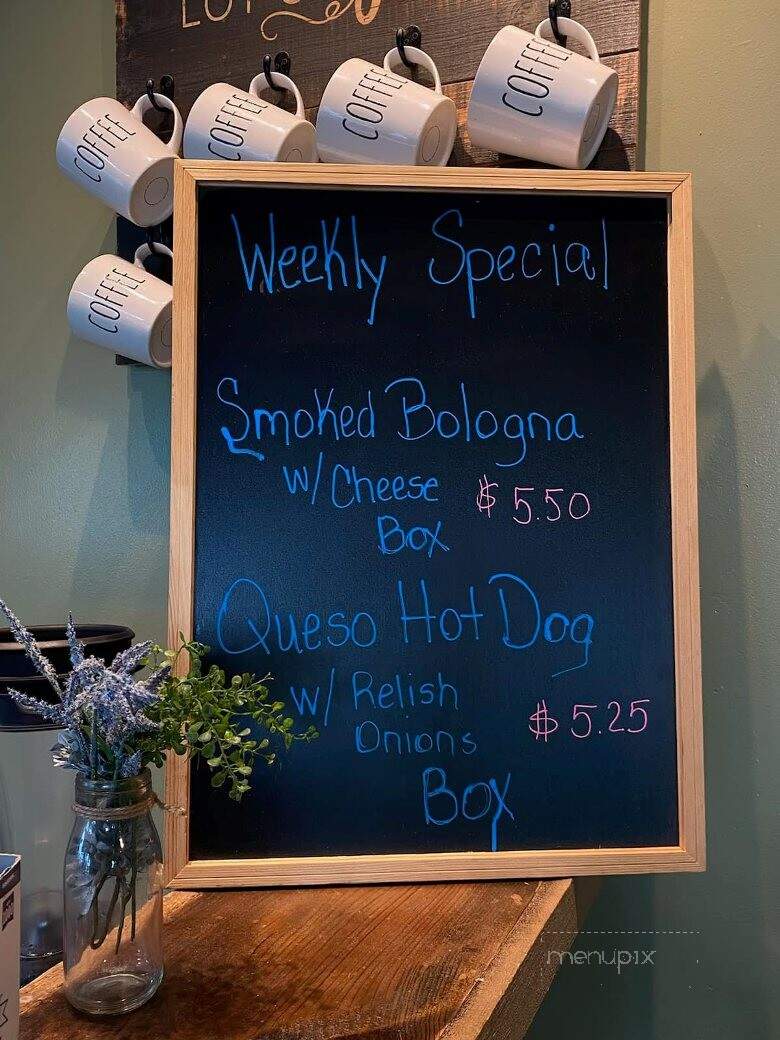 COFFEE
COFFEE
COFFEE
COFFEE
COFFEE
Weekly Special
Smoked Bologna
w/ Cheese $5.50
Box
Queso Hot Dog
w/ Relish
Onions $5.25
Box
menupix